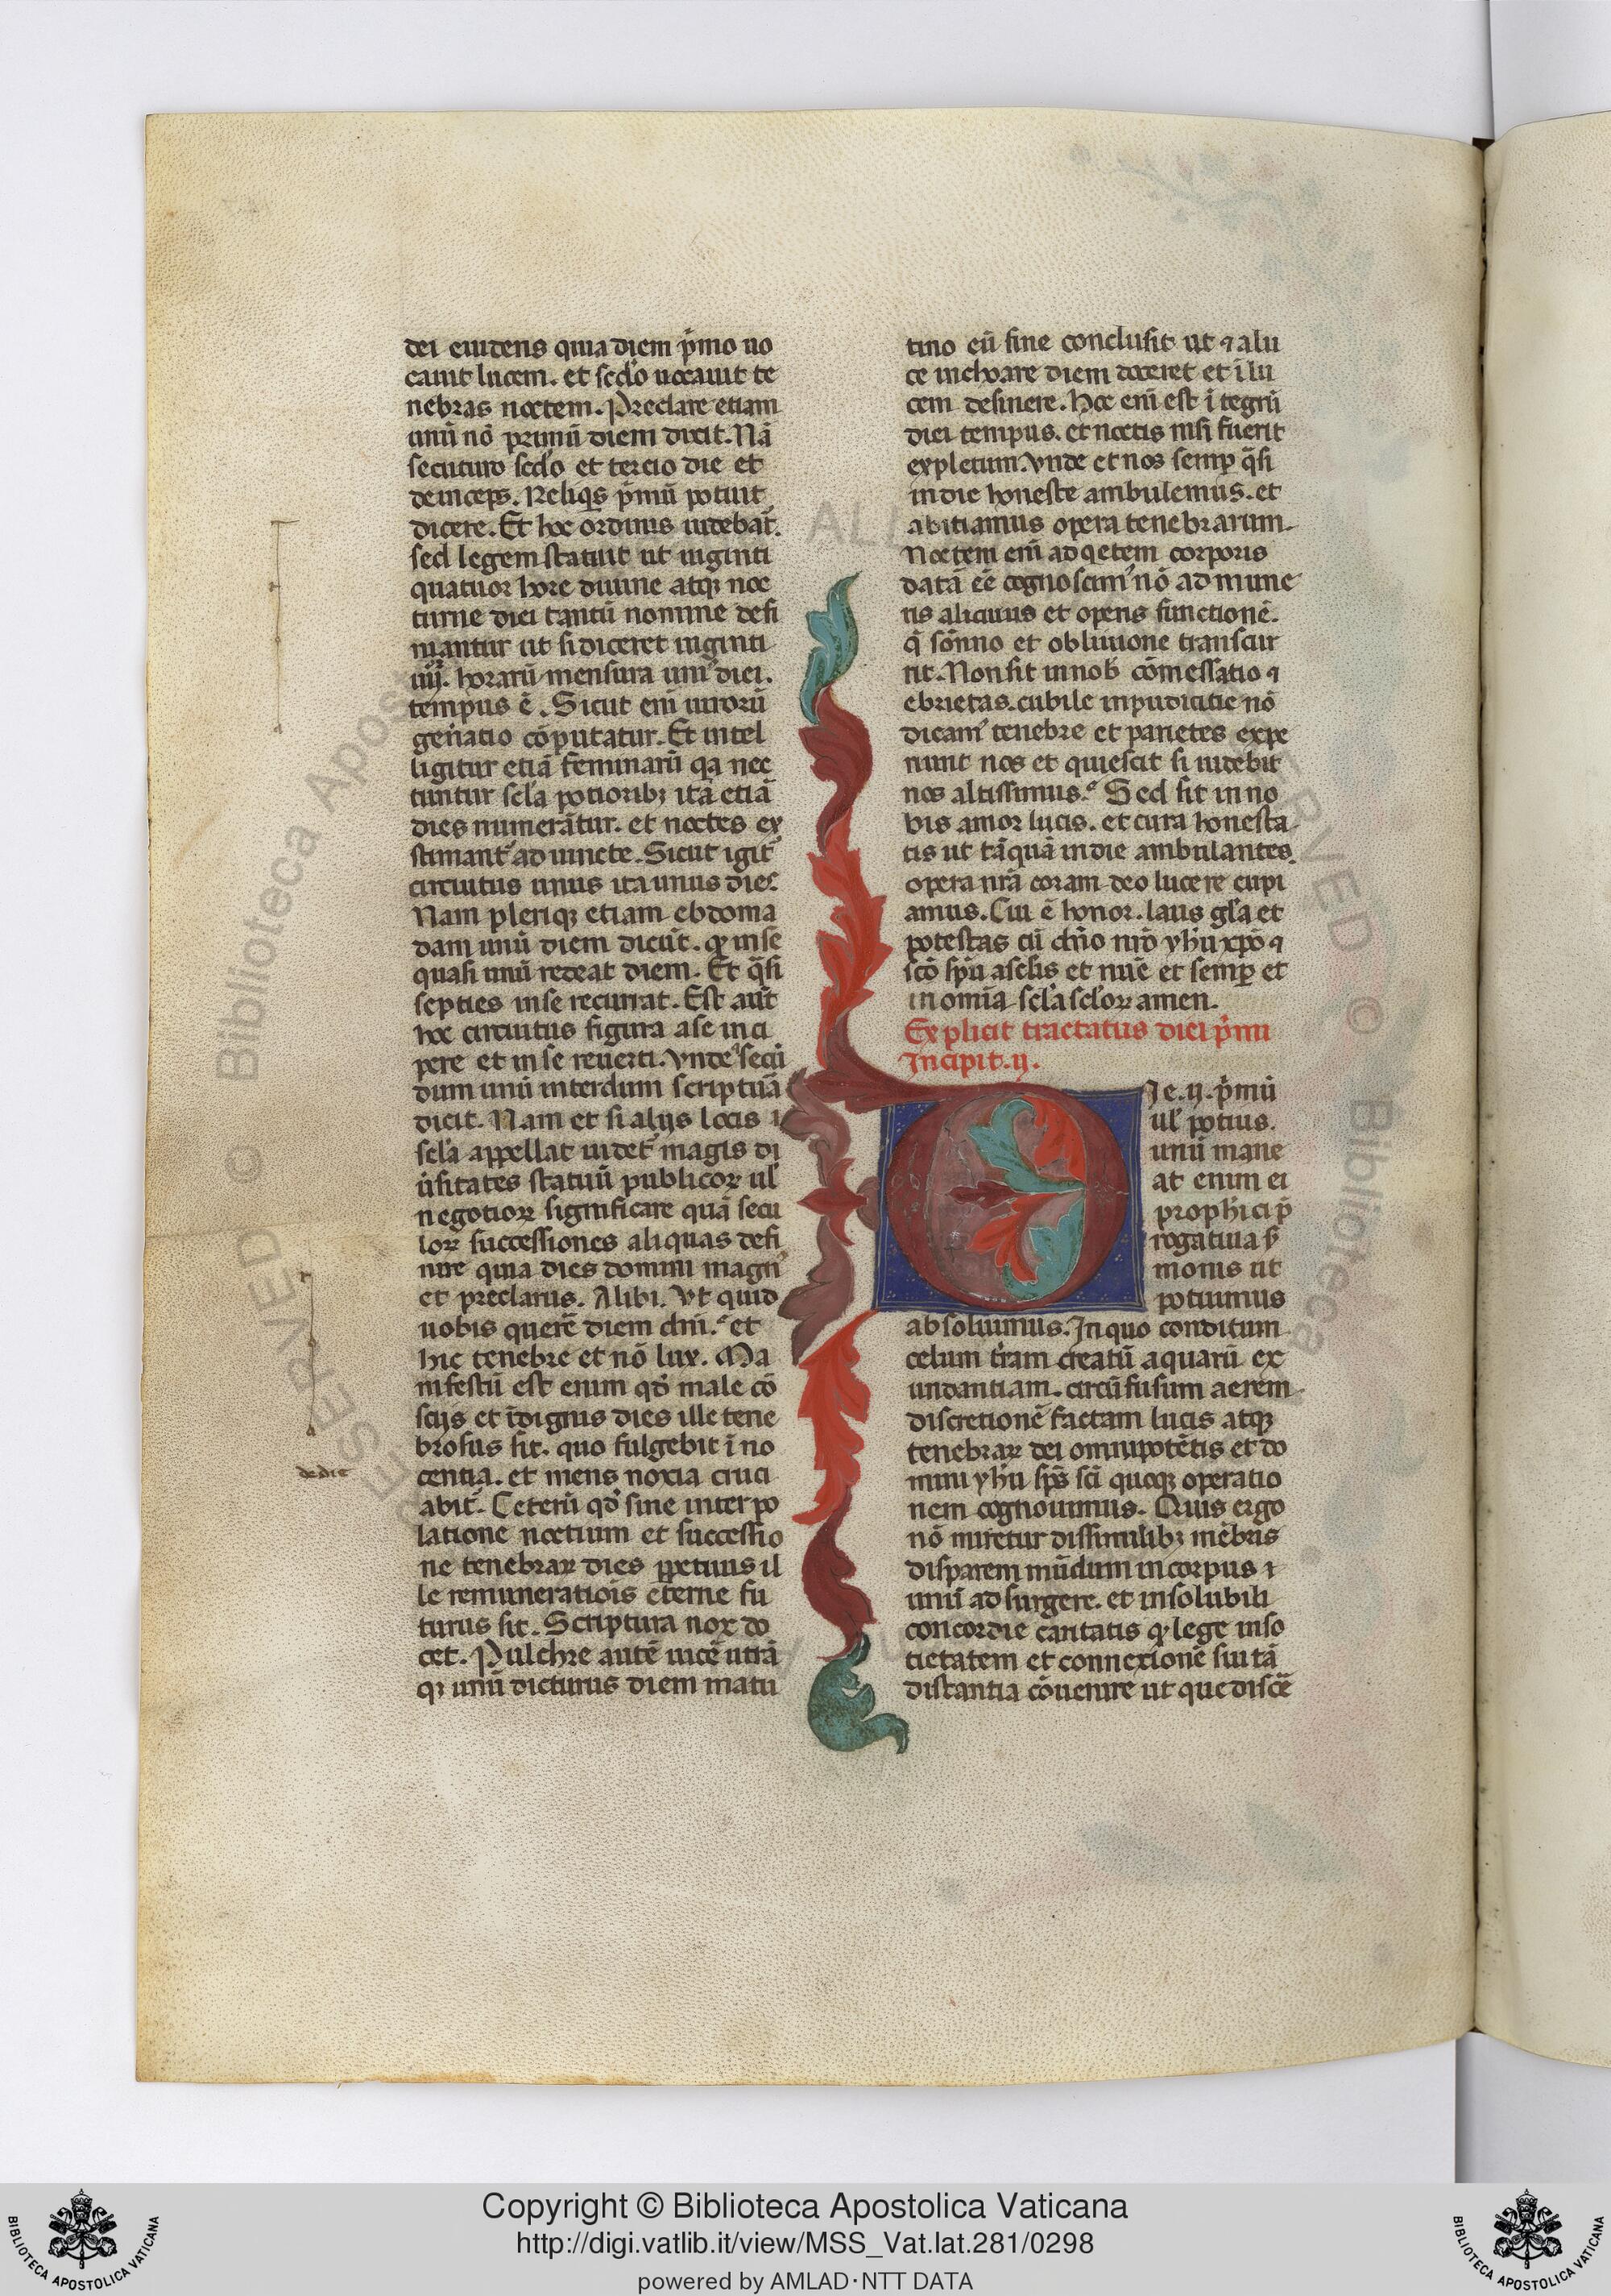 dei euidens quia diem p̄mo uo
cauit lucem. et sc̄do uocauit te
nebras noctem. Preclare etiam
unū nō primū diem dixit. Nā
secuturo sc̄do et tercio die et
deinceps. Reliq̄s p̄mū potuit
dicere. Et hoc ordinis uidebat̄.
sed legem statuit ut uiginti
quatuor hore diuine atqꝫ noc
turne diei tantū nomine defi
niantur ut si diceret uiginti
iiijor. horarū mensura uni᾽ diei.
tempus ē. Sicut eni uirorū
gen̄atio cōputatur. Et intel
ligitur etiā feminarū qa nec
tuntur sc̄la potioribꝫ ita etiā
dies numerātur. et noctes ex
stimant᾽ ad iuncte. Sicut igit᾽
circuitus unus ita unus dies
Nam pleriqꝫ etiam ebdoma
dam unū diem dicūt. qꝫ in se
quasi unū redeat diem. Et q̄si
septies in se recurrat. Est aūt
hoc circuitus figura a se inci
pere et in se reuerti. Vnde secū
dum unū interdum scriptuā
dicit. Nam et si alijs locis i
sc̄la appellat uidet᾽ magis di
ūsitates statuū publicoꝝ ul̄
negotioꝝ significare quā secu
loꝝ successiones aliquas defi
nire quia dies domini magn᾽
et preclarus. Alibi. Vt quid
uobis querē diem dn̄i. et
hic tenebre et nō lux. Ma
nifestū est enim qd̄ male cō
scijs et īdignis dies ille tene
brosus sit. quo fulgebit ī no
centia. et mens noxia cruci
abit᾽. Ceterū qd̄ sine interpo
dedit
latione noctium et successio
ne tenebraꝝ dies ꝑpetuus il
le remuneratiois eterne fu
turus sit. Scriptura nox do
cet. Pulchre autē uicē utrā
qꝫ unū dicturus diem matu
tino eū fine conclusit ut ⁊ a lu
ce inchoare diem doceret et ī lu
cem desinere. Hoc eni est ī tegrū
diei tempus. et noctis nisi fuerit
expletum. Vnde et nos semꝑ q̄si
in die honeste ambulemus. et
abitiamus opera tenebrarum.
Noctem eni ad qetem corporis
datā eē cognoscim᾽ nō ad mune
ris alicuius et operis functionē.
q̄ sōnno et obliuione transcur
rit. Non sit in nob̄ cōmessatio ⁊
ebrietas. cubile inpudicitie nō
dicam᾽ tenebre et parietes expe
nunt nos et quiescit si uidebit
nos altissimus. Sed sit in no
bis amor lucis. et cura honesta
tis ut tāquā in die ambulantes
opera nr̄a coram deo lucere cupi
amus. Cui ē honor. laus gl̄a et
potestas cū dn̄o nr̄o yh̄u xp̄o ⁊
sc̄o sp̄u a sc̄lis et nūc et semꝑ et
in omīa sc̄la sc̄loꝝ amen.
Explicit tractatus diei p̄mi
Incipit. ij.
Die. ij. p̄mū
ul̄ potius.
unū mane
at enim ei
prophici p̄
rogatiua s̄
monis ut
potuimus
absoluimus. In quo conditum
celum tr̄am creatū aquarū ex
undantiam. circūfusum aerem
discretionē factam lucis atqꝫ
tenebraꝝ dei omnipotētis et do
mini yh̄u sp̄s sc̄i quoqꝫ operatio
nem cognouimus. Quis ergo
nō miretur dissimilibꝫ mēbris
disparem mūdum in corpus ⁊
unū ad surgere. et insolubili
concordie caritatis qꝫ lege in so
cietatem et connexionē sui tā
distantia cōuenire ut que discē
© Biblioteca Apostolica
ALL
RESERVED
© Biblioteca
Copyright © Biblioteca Apostolica Vaticana
http://digi.vatlib.it/view/MSS_Vat.lat.281/0298
powered by AMLAD·NTT DATA
BIBLIOTECA APOSTOLICA VATICANA
BIBLIOTECA APOSTOLICA VATICANA